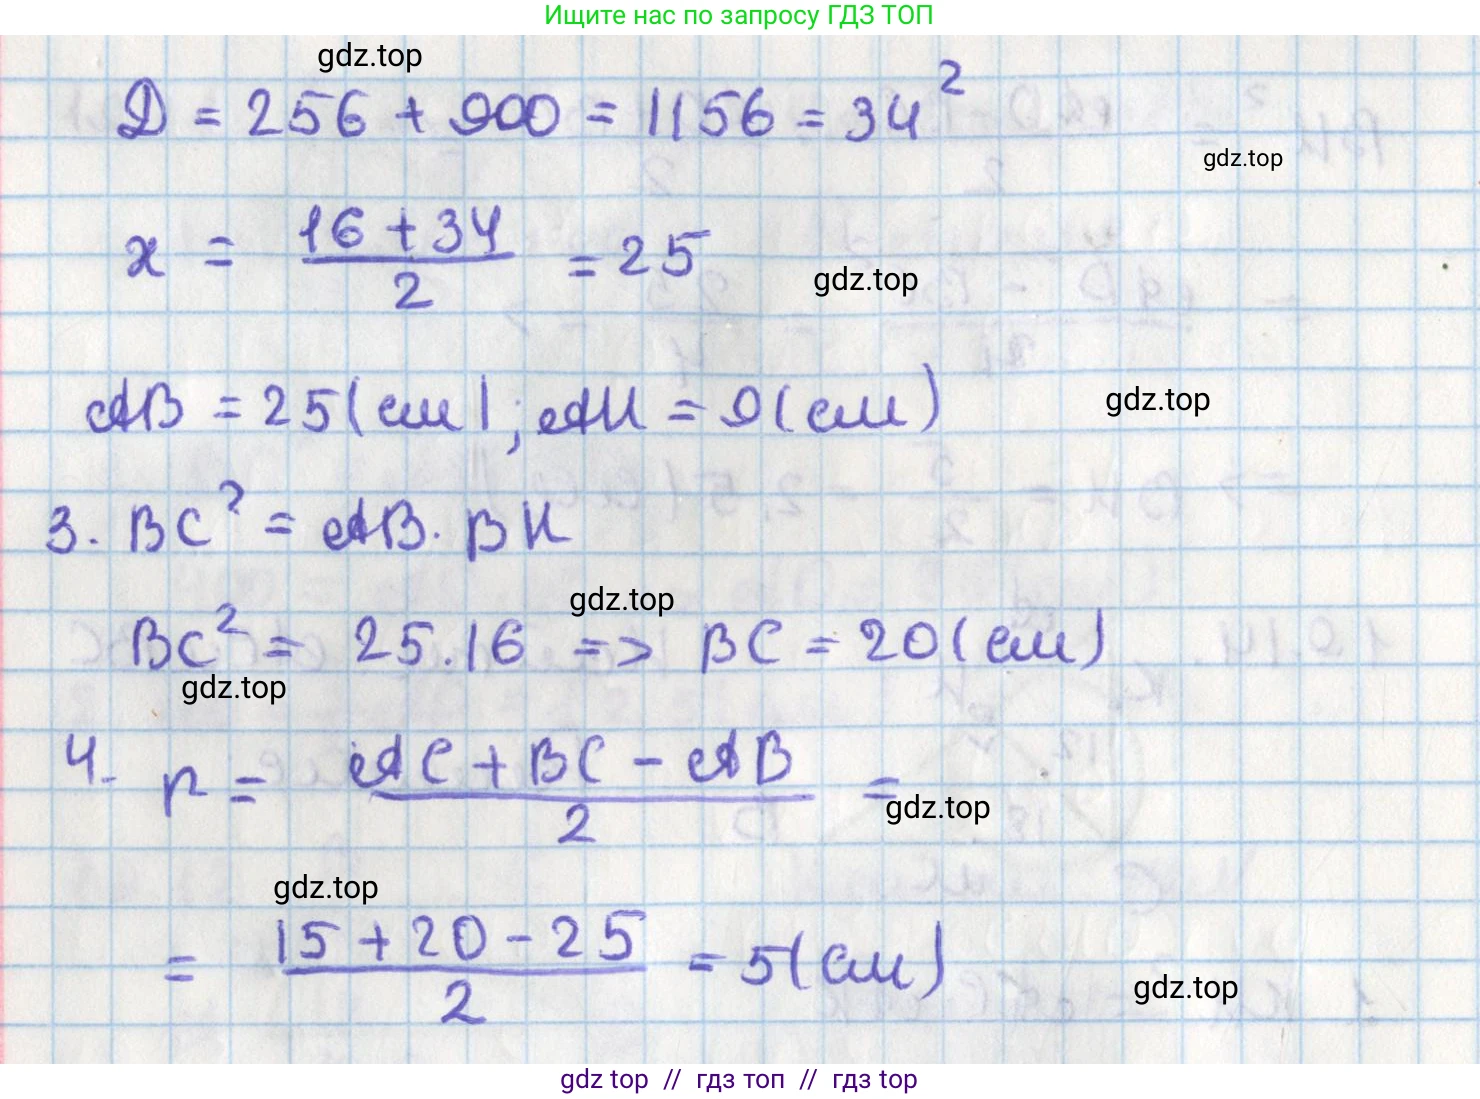 Ищите нас по запросу ГДЗ ТОП
gdz.top
D = 256 + 900 = 1156 = 34²
gdz.top
x = (16 + 34)/2 = 25
gdz.top
AB = 25 (см); AH = 9 (см)
gdz.top
3. BC² = AB · BH
gdz.top
BC² = 25 · 16 => BC = 20 (см)
gdz.top
4. r = (AC + BC - AB)/2 =
gdz.top
gdz.top
= (15 + 20 - 25)/2 = 5 (см)
gdz.top
gdz top // гдз топ // гдз top